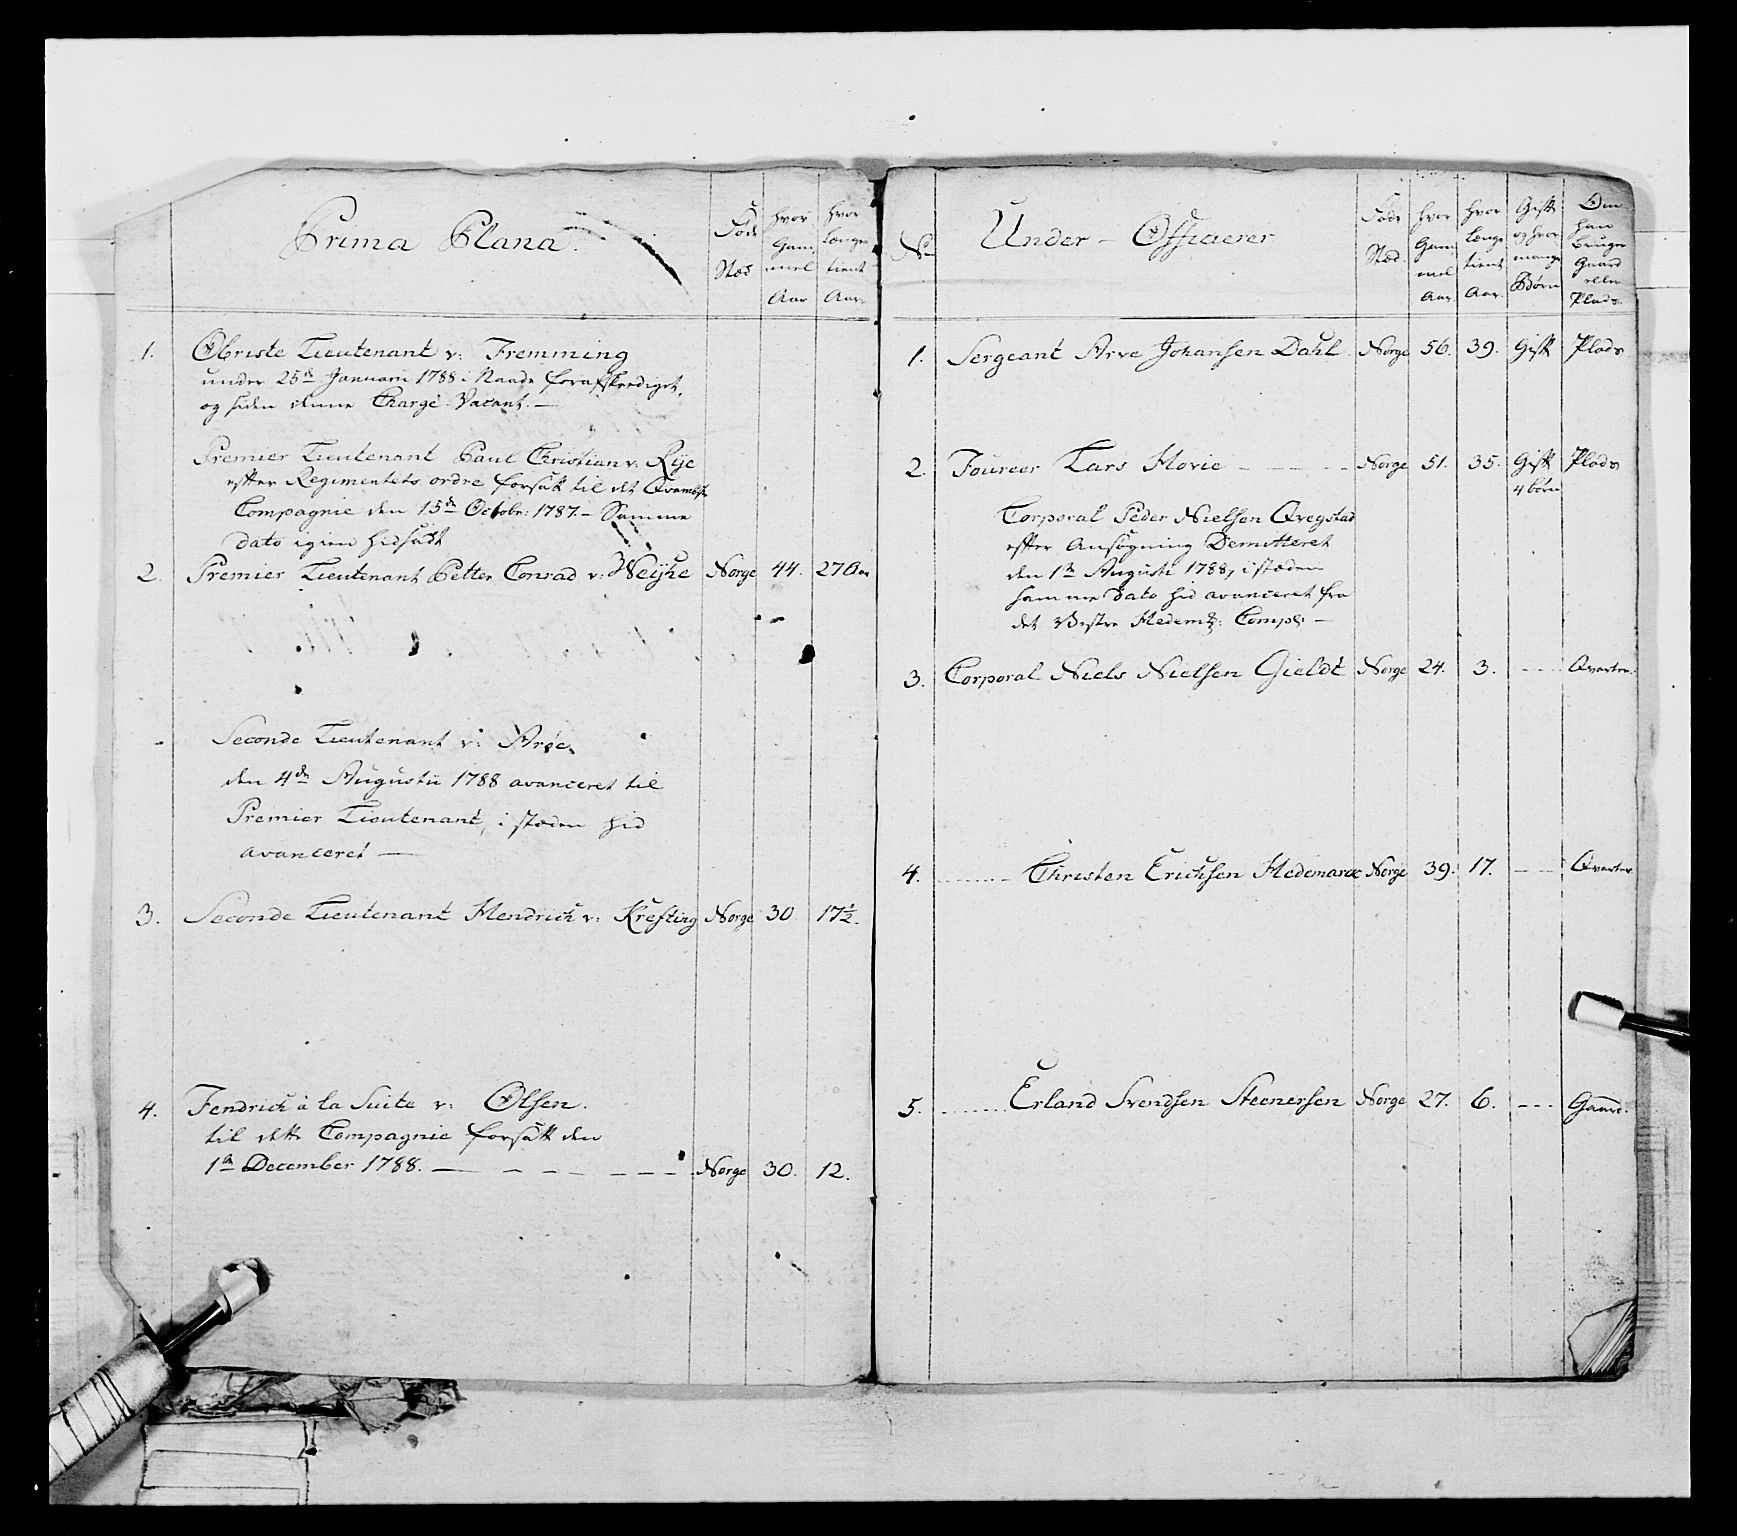 Prima Plana.
Føde Stæd
hvor Gammel Aar
hvor længe tient Aar.
1. Obriste Lieutenant v: Fremming
under 25de Januari 1788 i Naade forafskeediget,
og siden denne Charge Vacant. —
Premier Lieutenant Paul Christian v: Rije
efter Regimentets ordre forsatt til det
Compagnie den 15de Octobr: 1787. — Samme
dato igien hidsadt
2. Premier Lieutenant Petter Conrad v: Weyhe Norge 44. 27 Aar
Seconde Lieutenant v: Arøe,
den 4de Augustii 1788 avanceret til
Premier Lieutenant, i stæden hid
avanceret —
3. Seconde Lieutenant Hendrich v: Krefting Norge 30 17½.
4. Fendrich à la Suite v: Olsen.
til dette Compagnie forsatt den
1te December 1788. — — — — — — Norge 30. 12.
No
Under-Officerer
Føde Stæd.
hvor Gammel Aar.
hvor længe tient Aar.
Gift og hvor mange Børn
Om han bruger Gaard eller Plads.
1. Sergeant Arve Johansen Dahl. Norge 56. 39. Gift Plads
2. Foureer Lars Hovie — — — — Norge 51. 35. Gift Plads
4 børn
Corporal Peder Nielsen Qvegstad
efter Ansøgning Demitteret
den 1te Augusti 1788, i stæden
samme dato hid avanceret fra
det Vestre Hedem: Comp: —
3. Corporal Niels Nielsen Gieldt Norge 24. 3. — — Qvarteer.
4. — — — Christen Erichsen Hedemarck Norge 39. 17. — — Qvarteer
5. — — — Erland Svendsen Steenersen Norge 27. 6. — — Gaard.